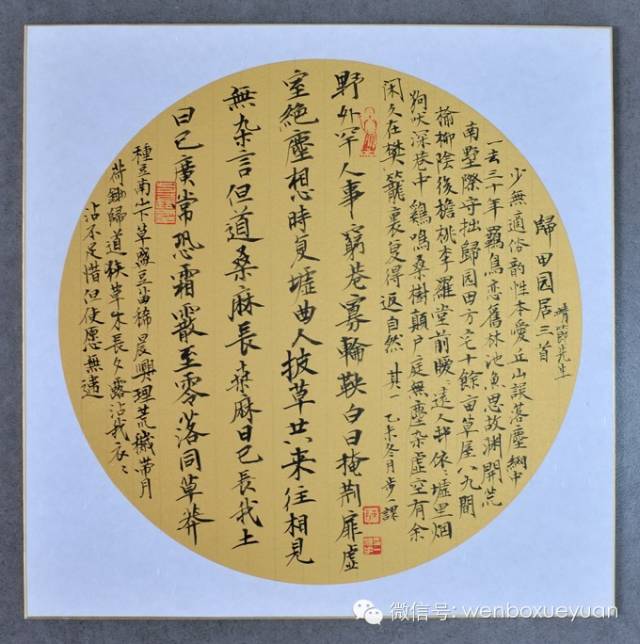 歸田园居三首
靖節先生
少無適俗韵性本愛丘山誤落塵網中
一去三十年羈鳥恋舊林池魚思故渊開荒
南墅際守拙歸园田方宅十餘亩草屋八九間
榆柳陰後檐桃李羅堂前曖遠人邨依々墟里烟
狗吠深巷中鷄鳴桑樹顛户庭無塵杂虚空有余
闲久在樊籠裏复得返自然 其一 乙未冬月步一課
野外罕人事窮巷寡輪鞅白日掩荆扉虚
室絶塵想時复墟曲人披草共来往相見
無杂言但道桑麻長桑麻日已長我土
日已廣常恐霜霰至零落同草莽
種豆南山下草盛豆苗稀晨興理荒穢带月
荷鋤歸道狭草木長夕露沾我衣々
沾不足惜但使愿無違
微信号: wenboxueyuan